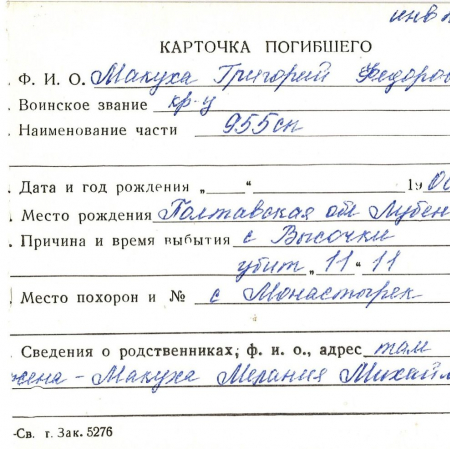 инв
КАРТОЧКА ПОГИБШЕГО
. Ф. И. О. Макуха Григорий Федоров
. Воинское звание кр-ц
. Наименование части 955сп
. Дата и год рождения „ “ 1900
. Место рождения Полтавская обл Лубен
. Причина и время выбытия с Высочки
убит „11“ 11
. Место похорон и № с Монастырек
. Сведения о родственниках, ф. и. о., адрес там
жена - Макуха Мерания Михайл
-Св. г. Зак. 5276